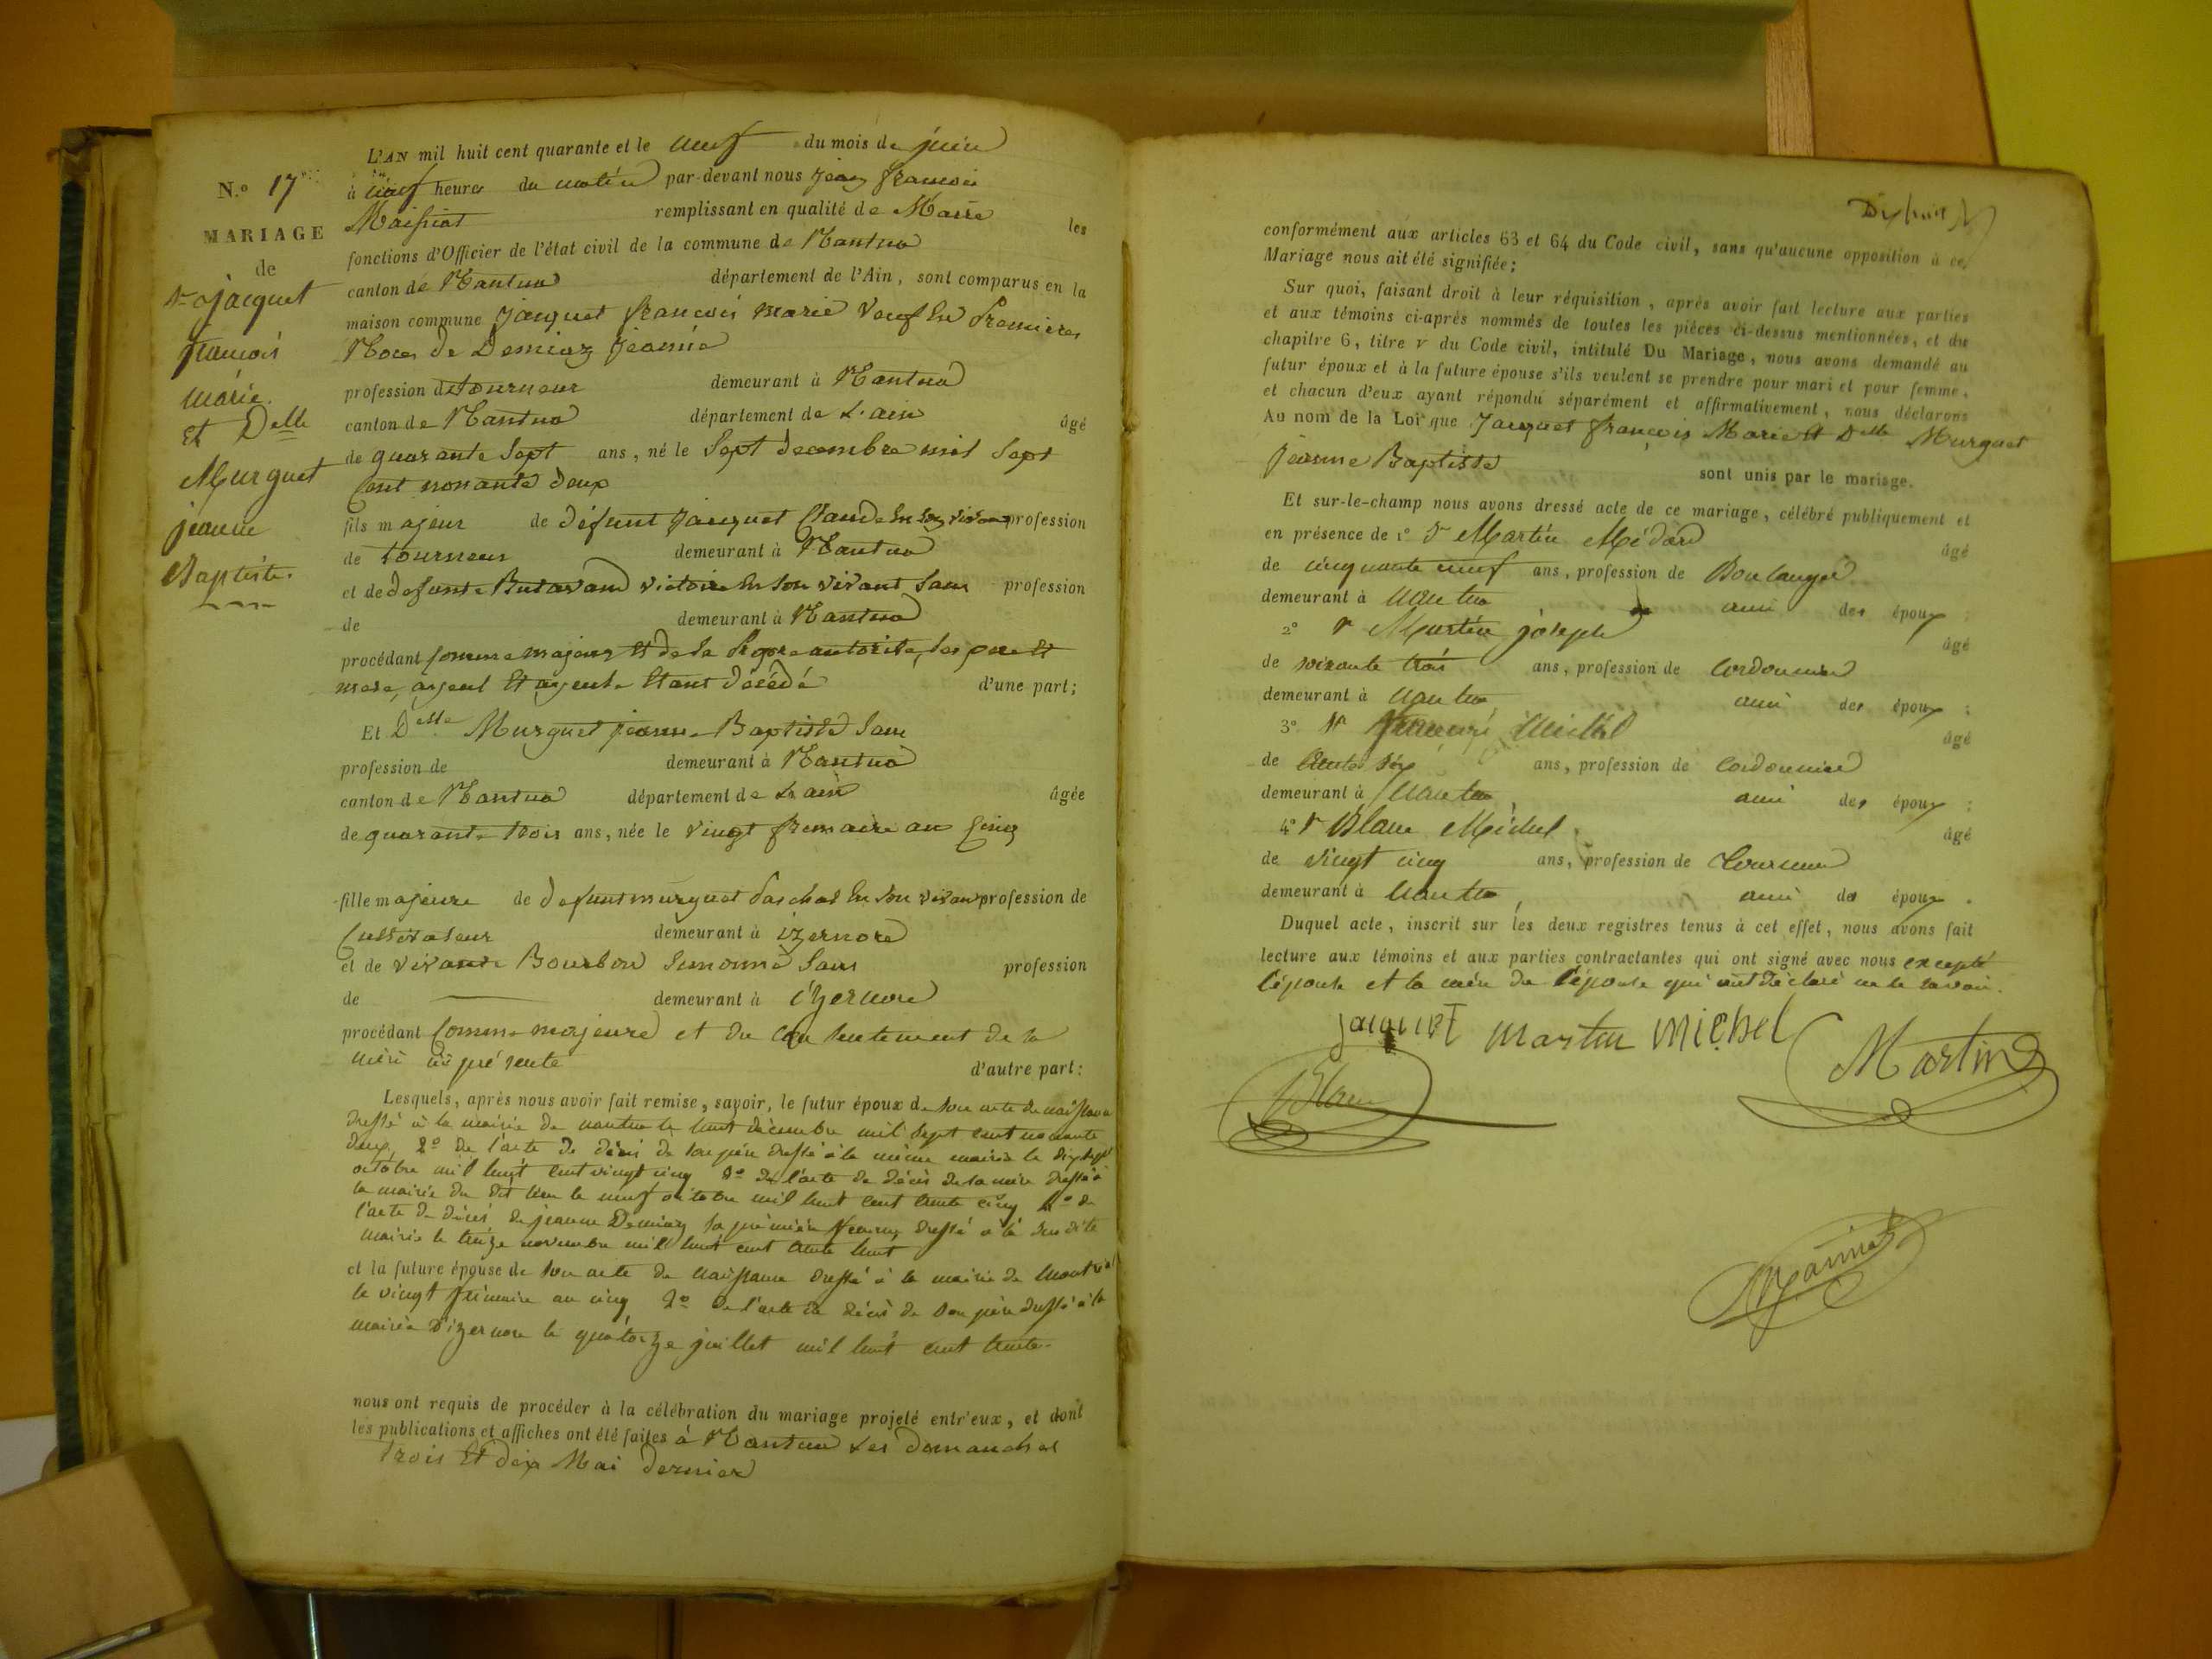 N.o 17
MARIAGE
de
Sr Jacquet
françois
marie.
Et Delle
Murguet
jeanne
Baptiste.
L'AN mil huit cent quarante et le neuf du mois de juin
à neuf heures du matin par-devant nous Jean françois
Maissiat remplissant en qualité de Maire les
fonctions d'Officier de l'état civil de la commune de Nantua
canton de Nantua département de l'Ain, sont comparus en la
maison commune Jacquet françois marie Veuf En Premieres
Noces de Demiaz jeanne
profession de tourneur demeurant à Nantua
canton de Nantua département de L'ain âgé
de quarante Sept ans, né le Sept decembre mil Sept
Cent nonante deux
fils majeur de défunt Jacquet Claude En son vivant profession
de tourneur demeurant à Nantua
et de defunte Butavand victoire En Son vivant Sans profession
de demeurant à Nantua
procédant Comme majeur Et de Sa Propre autorité, Ses pere Et
mere, ayeul Et ayeule Etant décédé d'une part;
Et Delle Murguet jeanne Baptiste Sans
profession de demeurant à Nantua
canton de Nantua département de L'ain âgée
de quarante trois ans, née le vingt frimaire an Cinq
fille majeure de defunt murguet Paschal En Son vivant profession de
Cultivateur demeurant à izernore
et de vivante Bourbon Simonne Sans profession
de demeurant à izernore
procédant Comme majeure et du Consentement de sa
mère ici présente d'autre part:
Lesquels, après nous avoir fait remise, savoir, le futur époux de son acte de naissance
dressé à la mairie de nantua le huit décembre mil sept cent nonante
deux, 2o de l'acte de décès de son père dressé à la même mairie le dix sept
octobre mil huit cent vingt cinq 3o de l'acte de décès de sa mère dressé à
la mairie du dit lieu le neuf octobre mil huit cent trente cinq 4o de
l'acte de décès de jeanne Demiaz sa première femme, dressé à la susdite
mairie le treize novembre mil huit cent trente huit
et la future épouse de son acte de naissance dressé à la mairie de Montréal
le vingt frimaire an cinq 2o de l'acte de décès de son père dressé à la
mairie D'izernore le quatorze juillet mil huit cent trente.
nous ont requis de procéder à la célébration du mariage projeté entr'eux, et dont
les publications et affiches ont été faites à Nantua Les dimanches
trois Et dix Mai dernier
Dix huit
conformément aux articles 63 et 64 du Code civil, sans qu'aucune opposition à ce
Mariage nous ait été signifiée;
Sur quoi, faisant droit à leur réquisition, après avoir fait lecture aux parties
et aux témoins ci-après nommés de toutes les pièces ci-dessus mentionnées, et du
chapitre 6, titre v du Code civil, intitulé Du Mariage, nous avons demandé au
futur époux et à la future épouse s'ils veulent se prendre pour mari et pour femme,
et chacun d'eux ayant répondu séparément et affirmativement, nous déclarons
Au nom de la Loi que Jacquet françois Marie Et Delle Murguet
jeanne Baptiste sont unis par le mariage.
Et sur-le-champ nous avons dressé acte de ce mariage, célébré publiquement et
en présence de 1o Sr Martin Médard âgé
de cinquante neuf ans, profession de Boulanger
demeurant à nantua ami des époux;
2o Sr Martin joseph âgé
de soixante trois ans, profession de Cordonnier
demeurant à nantua ami des époux;
3o Sr Michel âgé
de trente six ans, profession de Cordonnier
demeurant à Nantua ami des époux;
4o Sr Blanc Michel âgé
de vingt cinq ans, profession de Tourneur
demeurant à Nantua ami des époux.
Duquel acte, inscrit sur les deux registres tenus à cet effet, nous avons fait
lecture aux témoins et aux parties contractantes qui ont signé avec nous excepté
l'épouse et la mère de l'épouse qui ont déclaré ne le savoir.
jacquet martin michel Martin
Blanc